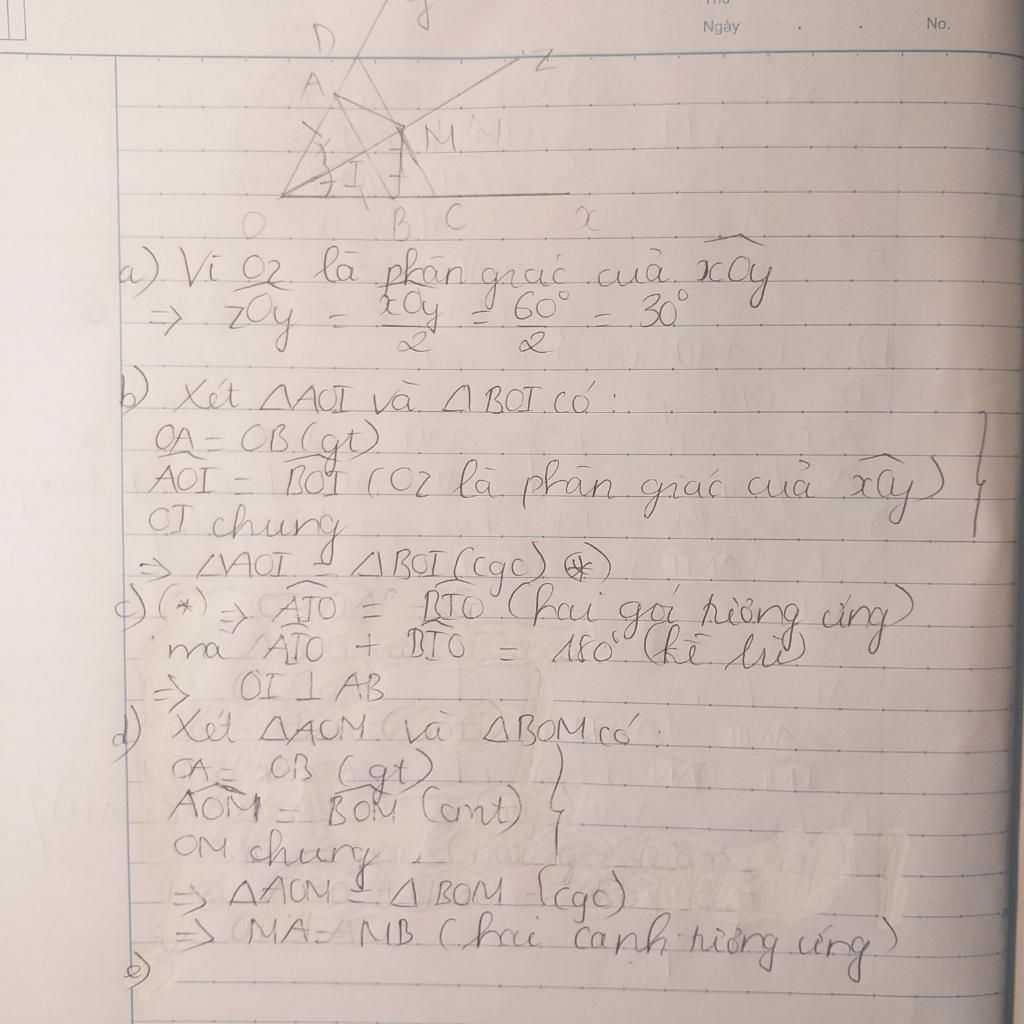 Thứ
Ngày . . No.
y
D
z
A
M
I
O B C x
a) Vì Oz là phân giác của xOy
=> zOy = xOy/2 = 60°/2 = 30°
b) Xét △AOI và △BOI có:
OA = OB (gt)
AOI = BOI (Oz là phân giác của xOy)
OI chung
=> △AOI = △BOI (cgc) (*)
c) (*) => AIO = BIO (hai gói tương ứng)
mà AIO + BIO = 180° (kề bù)
=> OI ⊥ AB
d) Xét △AOM và △BOM có:
OA = OB (gt)
AOM = BOM (cmt)
OM chung
=> △AOM = △BOM (cgc)
=> MA = MB (hai cạnh tương ứng)
e)